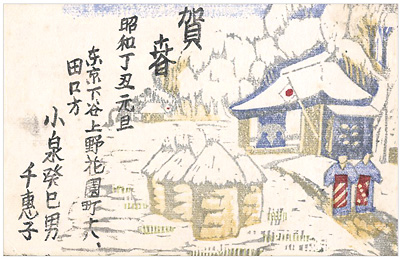 賀春
昭和丁丑元旦
东京下谷上野花園町六、
田口方
小泉癸巳男
千惠子